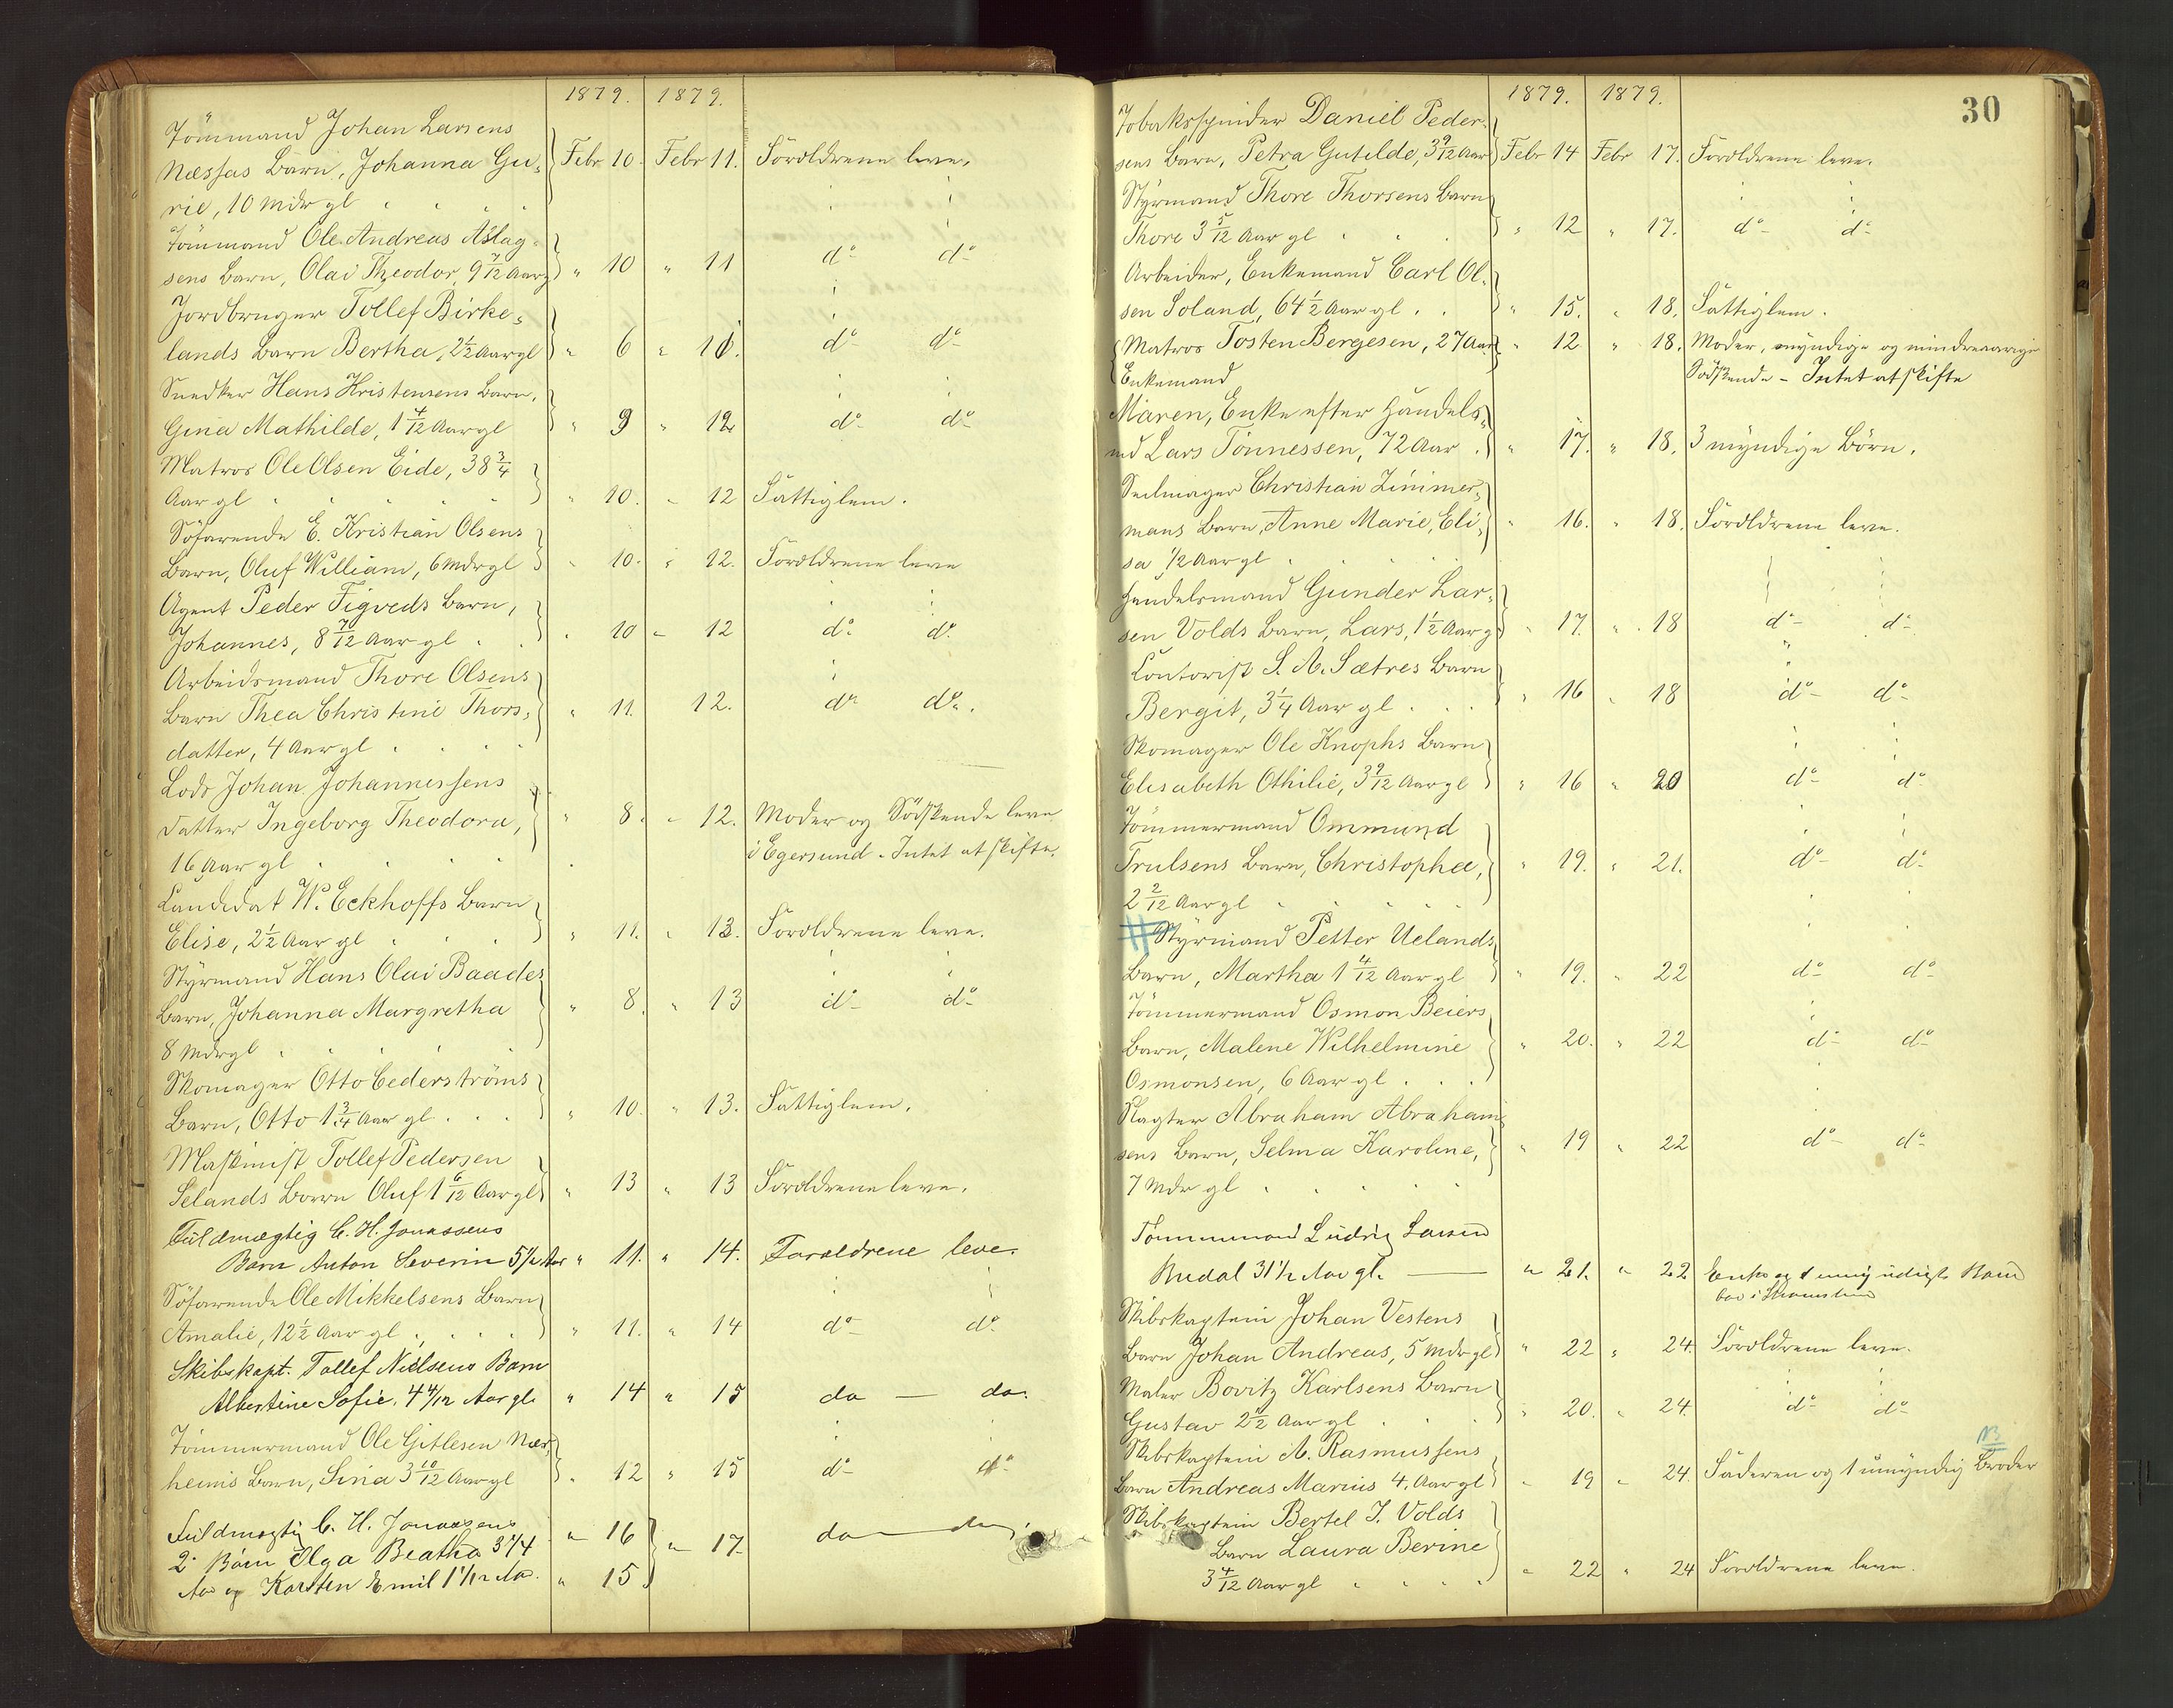 1879. 1879.
Tömmand Johan Larsens
Næssas Barn, Johanna Gu- Febr 10. Febr 11. Foroldrene leve.
rie, 10 Mdr gl
Tömmand Ole Andreas Aslag-
sens Barn, Olai Theodor, 9 7/12 Aar gl " 10 " 11 do do
Jordbruger Tollef Birke-
lands Barn Bertha, 2 1/2 Aar gl " 6 " 11. do do
Snedker Hans Kristensens Barn,
Gina Mathilde, 1 4/12 Aar gl " 9 " 12 do do
Matros Ole Olsen Eide, 38 3/4
Aar gl " 10. " 12 Fattiglem.
Söfarende E. Kristian Olsens
Barn, Oluf William, 6 Mdr gl " 10. " 12. Foroldrene leve
Agent Peder Figveds Barn,
Johannes, 8 7/12 Aar gl " 10 " 12 do do
Arbeidsmand Thore Olsens
Barn Thea Christine Thors- " 11. 12. do do.
datter, 4 Aar gl
Lods Johan Johannessens
Datter Ingeborg Theodora, " 8. " 12. Moder og Södskende leve
16 Aar gl i Egersund. Intet at skifte.
Candidat W. Eckhoffs Barn
Elise, 2 1/2 Aar gl " 11. " 13. Foroldrene leve.
Styrmand Hans Olai Baades
Barn, Johanna Margretha " 8. " 13 do do
8 Mdr gl
Skomager Otto Cederströms
Barn, Otto 1 3/4 Aar gl " 10. " 13. Fattiglem.
Maskinist Tollef Pedersen
Selands Barn Oluf 1 6/12 Aar gl " 13 " 13 Foroldrene leve.
Fuldmægtig C. H. Jonassens
Barn Anton Severin 5 1/2 Aar " 11. " 14. Foroldrene leve.
Söfarende Ole Mikkelsens Barn
Amalie, 12 1/2 Aar gl " 11. " 14 do do
Skibskapt. Tollef Nielsens Barn
Albertine Sofie, 4 4/12 Aar gl. " 14 " 15 do — do.
Tömmermand Ole Gitlesen Nær-
heims Barn, Sina 3 10/12 Aar gl " 12 " 15 do do
Fuldmægtig C. H. Jonassens " 16
2 Börn Olga Beatha 3 1/4 " 17. do do
Aar og Karsten Emil 1 1/12 Aar. " 15
1879. 1879. 30
Tobaksspinder Daniel Peder-
sens Barn, Petra Gutilde, 3 9/12 Aar Febr 14 Febr 17. Foroldrene leve.
Styrmand Thore Thorsens Barn
Thore 3 5/12 Aar gl " 12 " 17. do do
Arbeider, Enkemand Carl Ol-
sen Soland, 64 1/2 Aar gl " 15. " 18. Fattiglem.
Matros Tosten Bergesen, 27 Aar " 12 " 18. Moder, myndige og mindreaarige
Enkemand Södskende - Intet at skifte
Maren, Enke efter Handels-
md Lars Tönnessen, 72 Aar " 17. " 18. 3 myndige Börn.
Seilmager Christian Zimmer-
mans Barn, Anne Marie, Eli- " 16. " 18. Foroldrene leve.
sa 1/2 Aar gl
Handelsmand Gunder Lar-
sen Volds Barn, Lars, 1 1/2 Aar gl " 17. " 18 do do
Contorist S. A. Sætres Barn
Bergit, 3 1/4 Aar gl " 16 " 18 do do
Skomager Ole Knophs Barn
Elisabeth Othilie, 3 9/12 Aar gl " 16 " 20 do do
Tömmermand Ommund
Trulsens Barn, Christopha, " 19. " 21. do do
2 2/12 Aar gl
Styrmand Petter Uelands
Barn, Martha 1 4/12 Aar gl " 19. " 22 do do
Tömmermand Osmon Beiers
Barn, Malene Wilhelmine " 20. " 22 do do
Osmonsen, 6 Aar gl
Slagter Abraham Abraham-
sens Barn, Selma Karoline, " 19 " 22 do do
7 Mdr gl
Tömmermand Ludvig Larsen
31 1/2 Aar gl. — " 21. " 22 Enke og 1 umyndigt Barn
Skibskaptein Johan Vestens
Barn Johan Andreas, 5 Mdr gl " 22 " 24. Foroldrene leve.
Maler Bovitz Karlsens Barn
Gustav 2 1/2 Aar gl " 20. " 24. do do
Skibskaptein A. Rasmussens NB
Barn Andreas Marius 4. Aar gl " 19 " 24. Faderen og 1 umyndig Broder
Skibskaptein Bertel T. Volds
Barn Laura Berine
3 4/12 Aar gl " 22 " 24 Foroldrene leve.